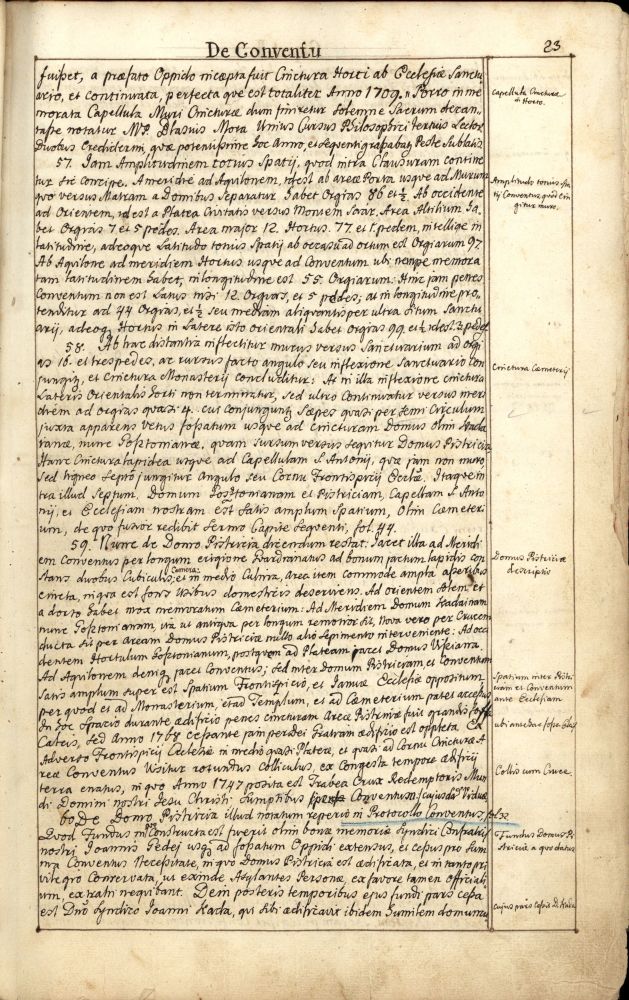 De Conventu
23
fuisset, a præfato Oppido incæpta fuit Cinctura Horti ab Ecclesiæ Sanctu-
ario, et continuata, perfecta que est totaliter Anno 1709. Porro in me
morata Capellula Muri Cincturæ dum finiretur solemne Sacrum decan-
tasse notatur M.V.P. Blasius Mora Unius Cursus Philosophici tertius Lector
Duobus Crediderim, quia potentissime hoc Anno, et sequenti grassabatur Peste sublatis
57. Jam Amplitudinem totius Spatij, quod intra Clausuram contine
tur sic concipe. A meridie ad Aquilonem, idest ab areæ Porta usque ad Murum
quo versus Matram a Domibus separatur habet Orgias 86 et ½. Ab occidente
ad Orientem, idest a Platea Civitatis versus Montem Saar. Area Altilium ha-
bet Orgias 7 et 5 pedes. Area major 12. Hortus. 77. et 1. pedem, intellige in
latitudine, adeoque Latitudo totius Spatij ab occasu ad ortum est Orgiarum 97.
Ab Aquilone ad meridiem Hortus usque ad Conventum ubi nempe memora
tam latitudinem habet, in longitudine est 55. Orgiarum: Hinc jam penes
Conventum non est Latus nisi 12. Orgias, et 5 pedes; at in longitudine pro-
tenditur ad 44 Orgias, et ½ seu mediam aliquantisper ultra situm Sanctu
arij, adeoque Hortus in Latere isto orientali habet Orgias 99. et ½ idest 3. pedes
58. Ab hac distantia inflectitur murus versus Sanctuarium ad orgi
as 16. et tres pedes, ac rursus facto angulo seu inflexione Sanctuario con
jungitur, et Cinctura Monasterij concluditur: At in illa inflexione cinctura
Lateris Orientalis horti non terminatur, sed ultro Continuatur versus meri
diem ad orgias quasi 4. cui Conjunguntur Sæpes quasi per semi Circulum
juxta apparens vetus fossatum usque ad cincturam Domus olim Kada
ianæ, nunc Gosztonianæ. quam sursum versus sequitur Domus Pistricia
Hanc Cinctura lapidea usque ad Capellulam S. Antonij, quæ jam non muro,
sed ligneo septo jungitur Angulo seu Cornu Frontispicij Ecclæ. Itaque in
tra illud Septum. Domum Gosztonianam et Pistriciam, Capellam S. Anto
nij, et Ecclesiam nostram est satis amplum Spatium, Olim Cæmeteri
um, de quo fusior redibit sermo Capite sequenti, fol. 44.
59. Nunc de Domo Pistricia dicendum restat. Jacet illa ad Meridi
em Conventus per longum e regione Guardianatus ad bonum jactum lapidis con
stans duobus Cubiculis, Camera, et in medio Culina, area item commode ampla asseribus
cincta, in qua est fons Usibus domesticis deserviens. Ad orientem Solem et
a dorso habet mox memoratum Cæmeterium: Ad Meridiem Domum Kadainam
nunc Gosztonianam, ita ut antiqua per longum remotior sit, Nova vero per Crucem
ducta sit per aream Domus Pistriciæ nullo alio sepimento interveniente: Ad occi
dentem Hortulum Gosztonianum, post quem ad Plateam jacet Domus Visciana.
Ad Aquilonem denique jacet Conventus; sed inter domum Pistriciam, et Conventum
satis amplum super est Spatium Frontispicio, et Januæ Ecclesiæ oppositum
per quod et ad Monasterium, et ad Templum, et ad Cæmeterium patet accessus
In hoc spacio durante ædificio penes cincturam Areæ Pistriniæ fuit grandis fossa
Calcis, sed Anno 1768 cessante jam per dei gratiam ædificio est oppleta. Ex
Adverso Frontispicij Ecclesiæ in medio quasi Plateæ, et quasi ad Cornu Cincturæ A-
reæ Conventus Visitur rotundus colliculus, ex Congesta tempore ædificij
terra enatus, in quo Anno 1747 posita est Trabea Crux Redemptoris Mun
di Domini nostri Jesu Christi Sumptibus Conventus cujusdam Viduæ
60. De Domo Pistricia illud notatum reperio in Protocollo Conventus, fol. 3.
Quod Fundus in quo Constructa est fuerit olim bonæ memoriæ Syndici Confratris
nostri Joannis Gedej usque ad fossatum Oppidi extensus, et cessus pro sum
ma Conventus Necessitate, in quo Domus Pistricia est ædificata, et in tanto pri
vilegio Conservata, ut exinde Asylantes Personæ, ex favore tamen Officiali
um, extrahi nequibant. Dein posteris temporibus ejus fundi pars cessa
est Dno Syndico Joanni Kada, qui sibi ædificavit ibidem humilem domum
Capellula Cincturæ
in Horto.
Amplitudo totius spa
tij Conventus quod cin
gitur muro.
Cinctura Cæmeterij
Domus Pistriciæ
descriptio
Spatium inter Pistri
ciam et Conventum
ante Ecclesiam
ubi antehac fossa Calcis
Collis cum Cruce
Fundus Domus Pi-
striciæ a quo datus
cujus pars cessa D. Kada